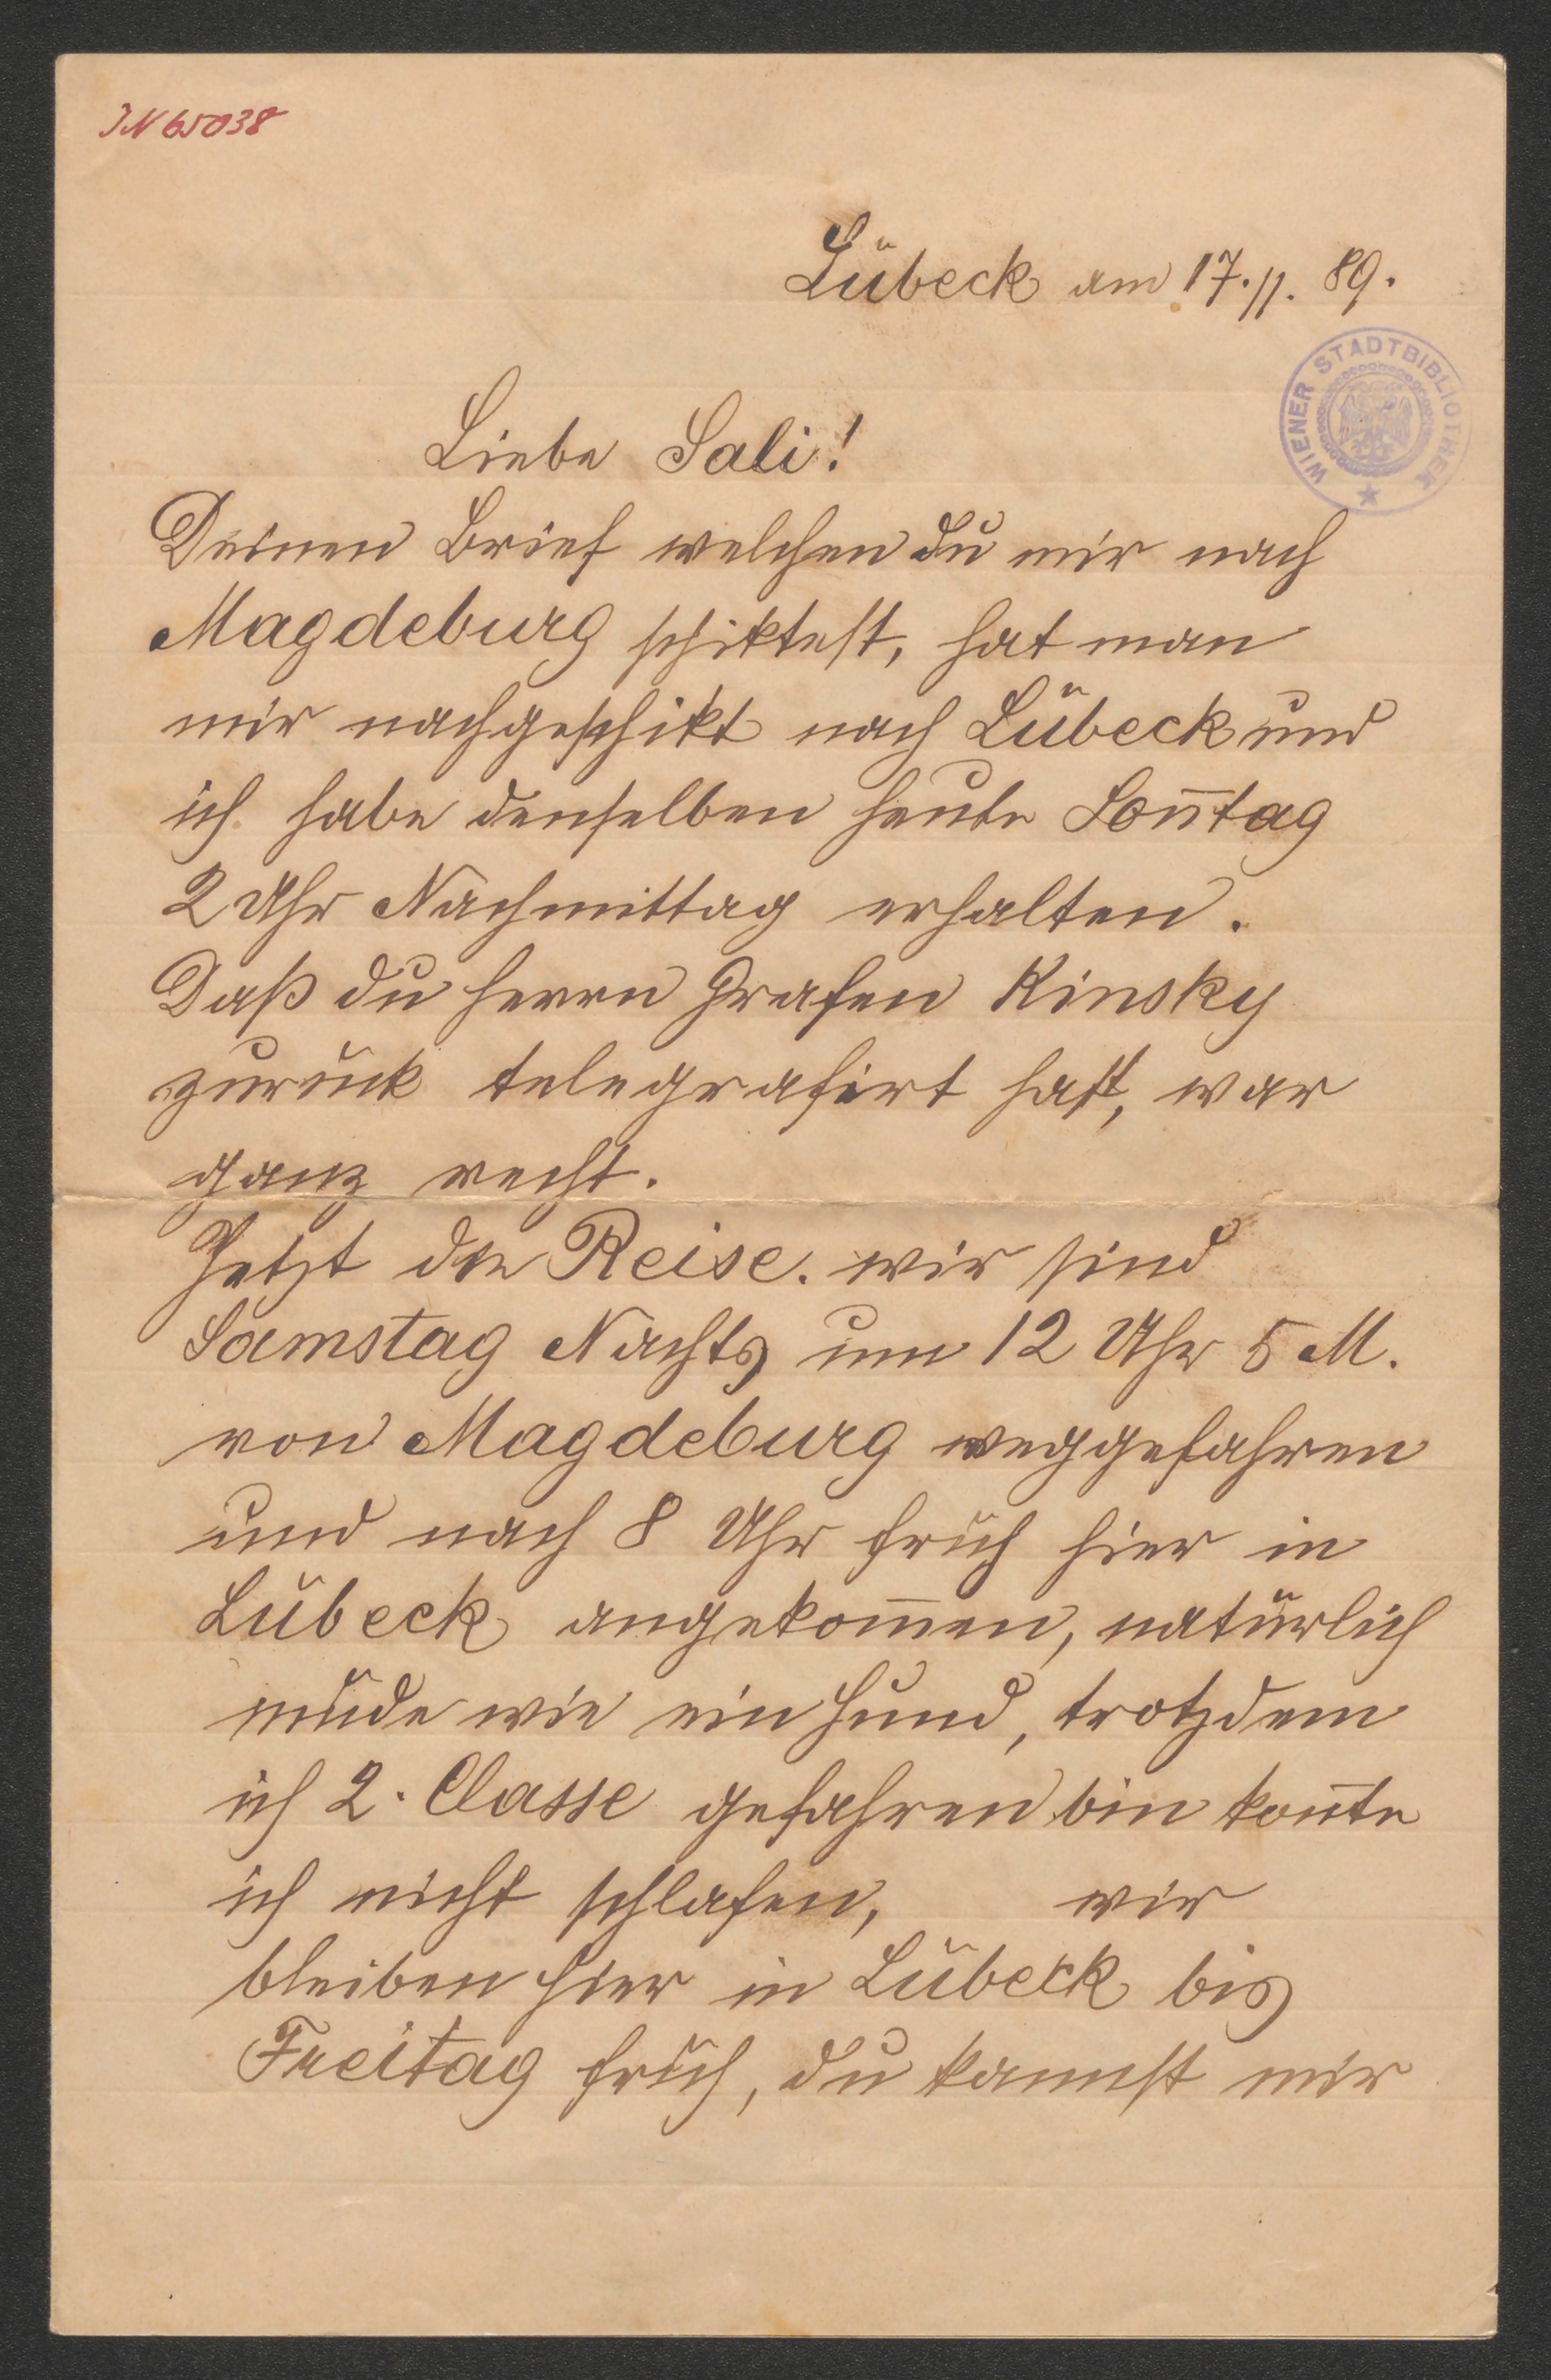 JN 65038
Lübeck am 17./11. 89.
WIENER STADTBIBLIOTHEK
Liebe Sali!
Deinen Brief welchen du mir nach
Magdeburg schiktest, hat man
mir nachgeschikt nach Lübeck und
ich habe denselben heute Son̄tag
2 Uhr Nachmittag erhalten.
Daß du Herrn Grafen Kinsky
zurük telegrafirt hast, war
ganz recht.
Jetzt die Reise. wir sind
Samstag Nachts um 12 Uhr 5 M.
von Magdeburg weggefahren
und nach 8 Uhr früh hier in
Lübeck angekom̄en, natürlich
müde wie ein Hund, trotzdem
ich 2. Classe gefahren bin kon̄te
ich nicht schlafen, wir
bleiben hier in Lübeck bis
Freitag früh, du kannst mir